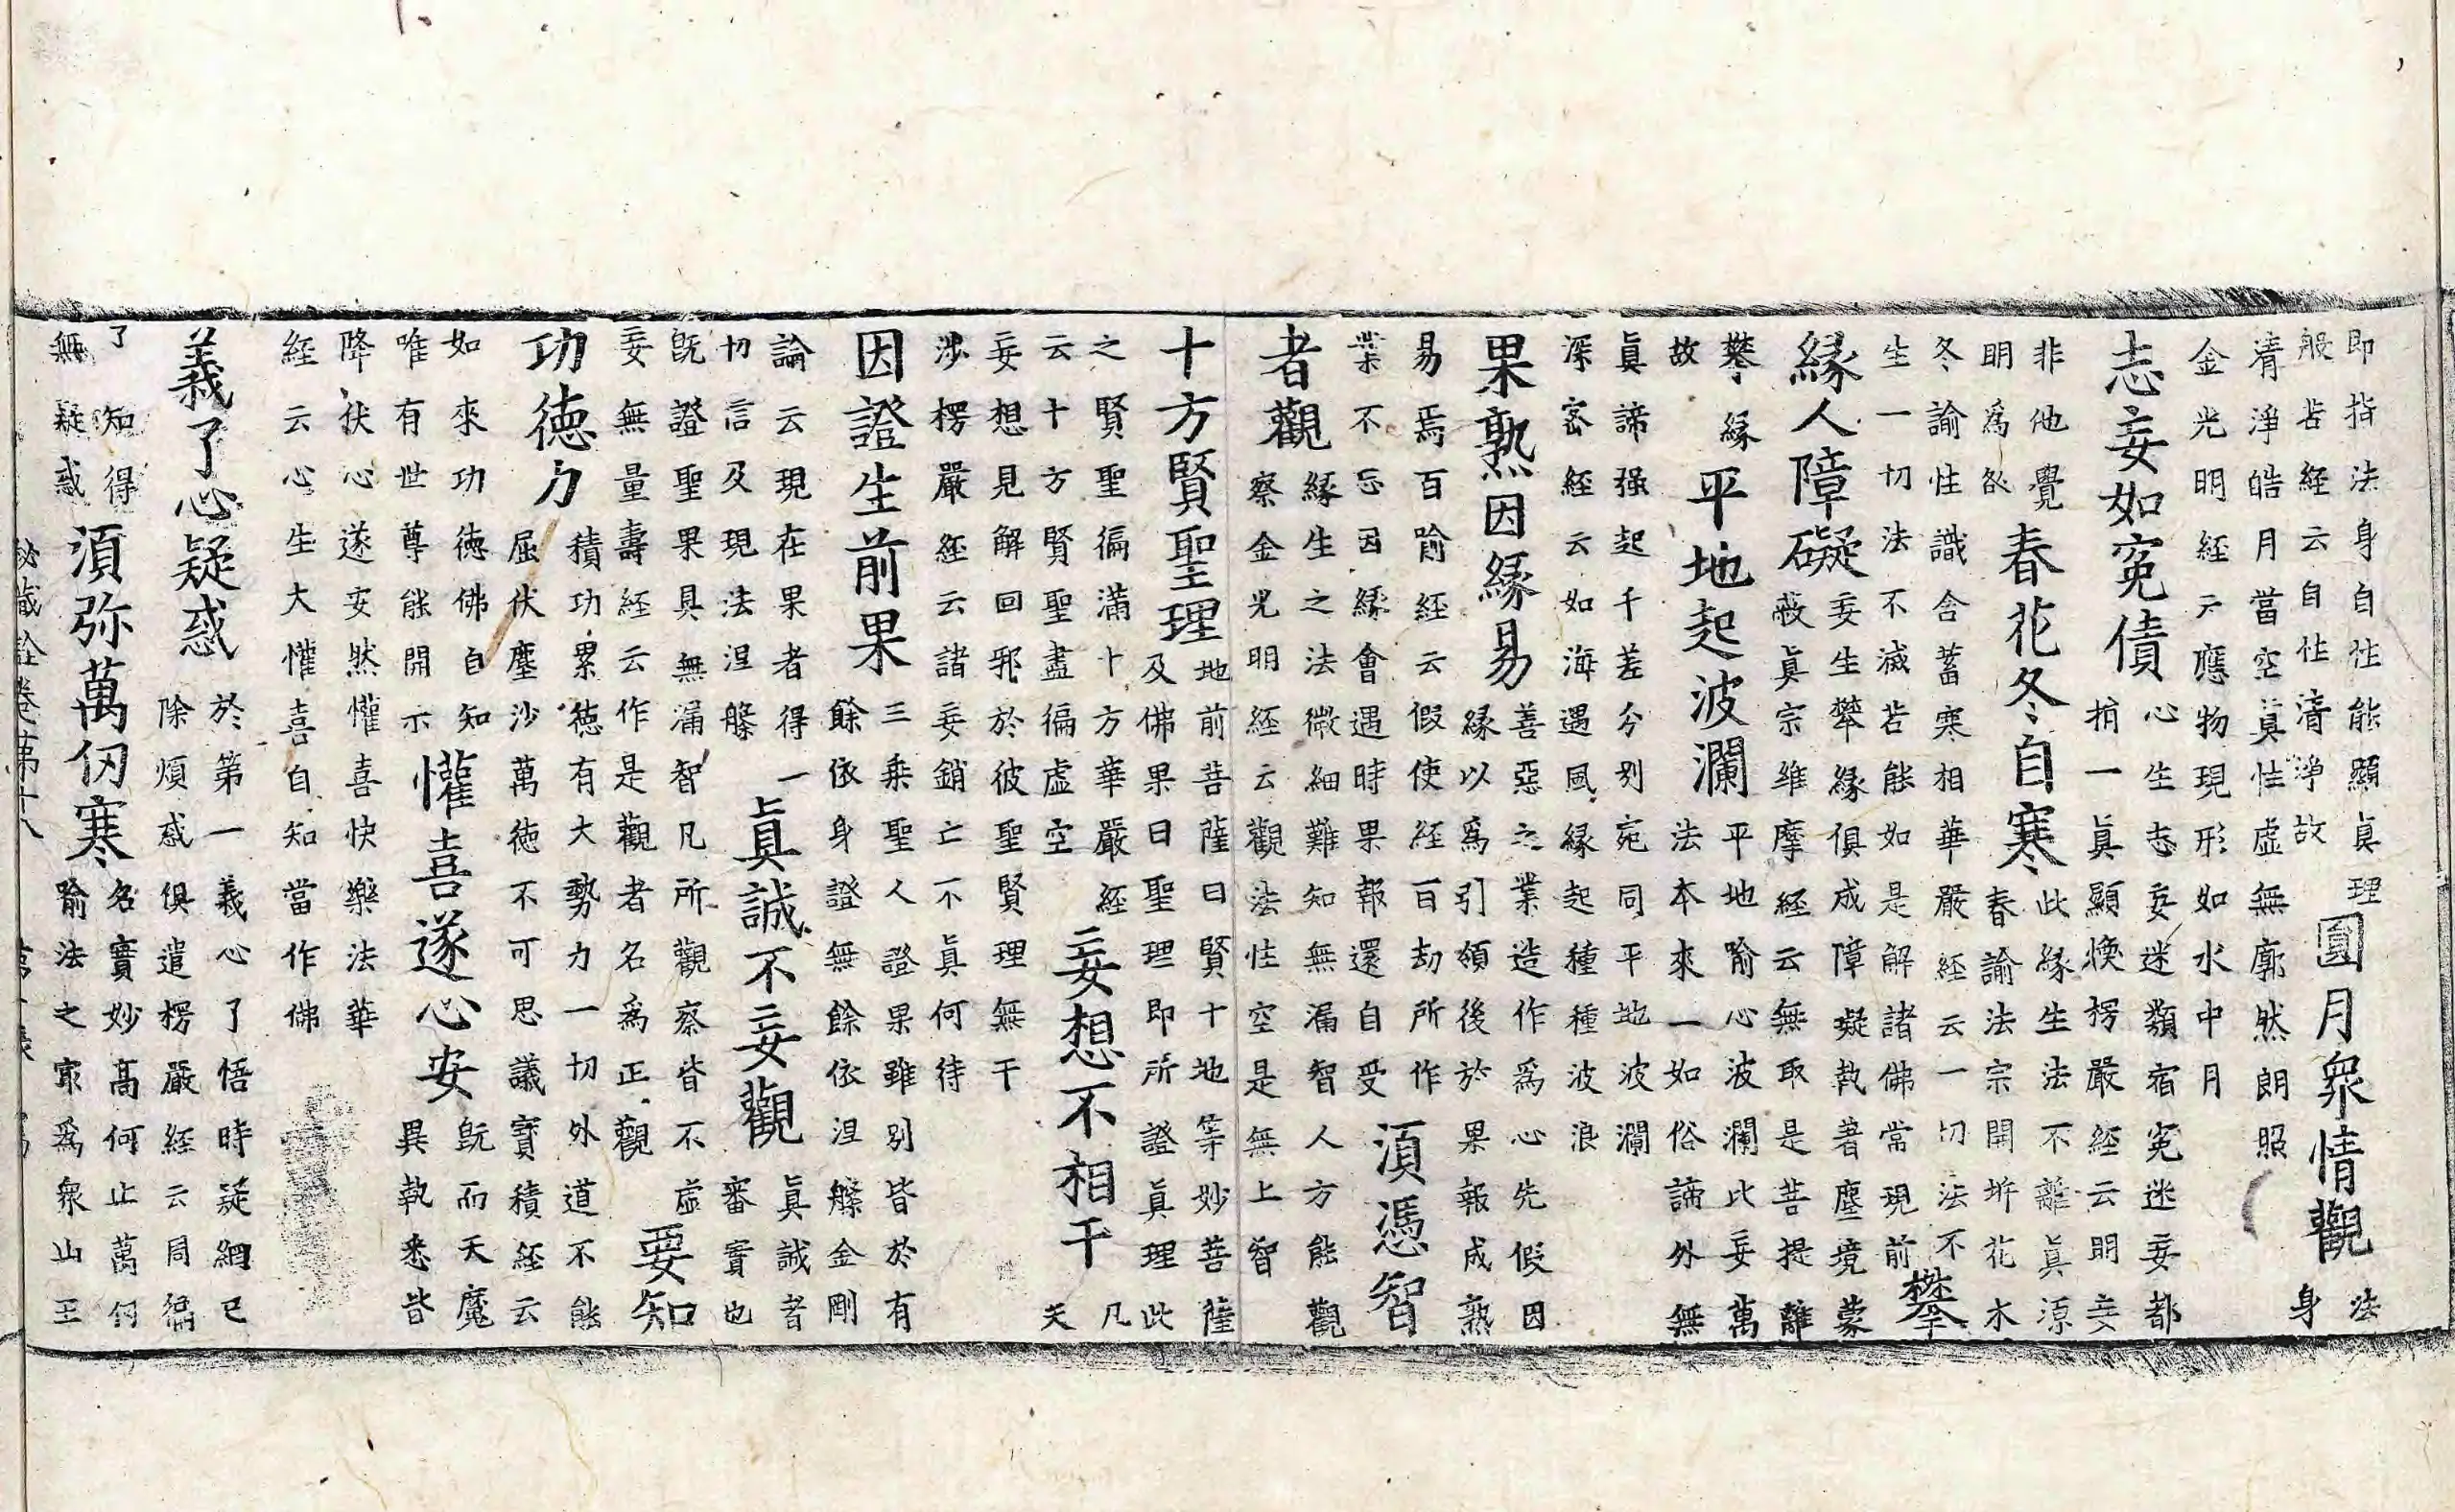 即指法身自性能顯眞理
般若經云自性清淨故
圓月衆情觀
法
身
清淨皓月當空眞性虛無廓然朗照
金光明經云應物現形如水中月
志妄如寃債
心生志妄迷類宿寃迷妄都
捎一眞顯煥楞嚴經云明妄
非他覺
明爲咎
春花冬自寒
此緣生法不離眞源
春諭法宗開坼花木
冬諭性識含蓄寒相華嚴經云一切法不
生一切法不滅若能如是解諸佛常現前
攀
緣人障礙
妄生攀緣俱成障礙執著塵境蒙
蔽眞宗維摩經云無取是菩提離
攀緣
故
平地起波瀾
平地喻心波瀾此妄萬
法本來一如俗諦外無
眞諦强起千差分別宛同平地波瀾
深密經云如海遇風緣起種種波浪
果熟因緣易
善惡之業造作爲心先假因
緣以爲引領後於果報成熟
易焉百喻經云假使經百劫所作
業不忘因緣會遇時果報還自受
須憑智
者觀
緣生之法微細難知無漏智人方能觀
察金光明經云觀法性空是無上智
十方賢聖理
地前菩薩曰賢十地等妙菩薩
及佛果曰聖理即所證眞理此
之賢聖徧滿十方華嚴經
云十方賢聖盡徧虛空
妄想不相干
凡
夫
妄想見解回邪於彼聖賢理無干
涉楞嚴經云諸妄銷亡不眞何待
因證生前果
三乘聖人證果雖別皆於有
餘依身證無餘依涅槃金剛
論云現在果者得一
切言及現法涅槃
眞誠不妄觀
眞誠者
審實也
旣證聖果具無漏智凡所觀察皆不虛
妄無量壽經云作是觀者名爲正觀
要知
功德力
積功累德有大勢力一切外道不能
屈伏塵沙萬德不可思議寶積經云
如來功德佛自知
唯有世尊能開示
懽喜遂心安
旣而天魔
異執悉皆
降伏心遂安然懽喜快樂法華
經云心生大懽喜自知當作佛
義了心疑惑
於第一義心了悟時疑網已
除煩惑俱遣楞嚴經云同徧
了知得
無疑惑
須弥萬仞寒
名寶妙高何止萬仞
喻法之最爲衆山王
秘藏詮卷第十八